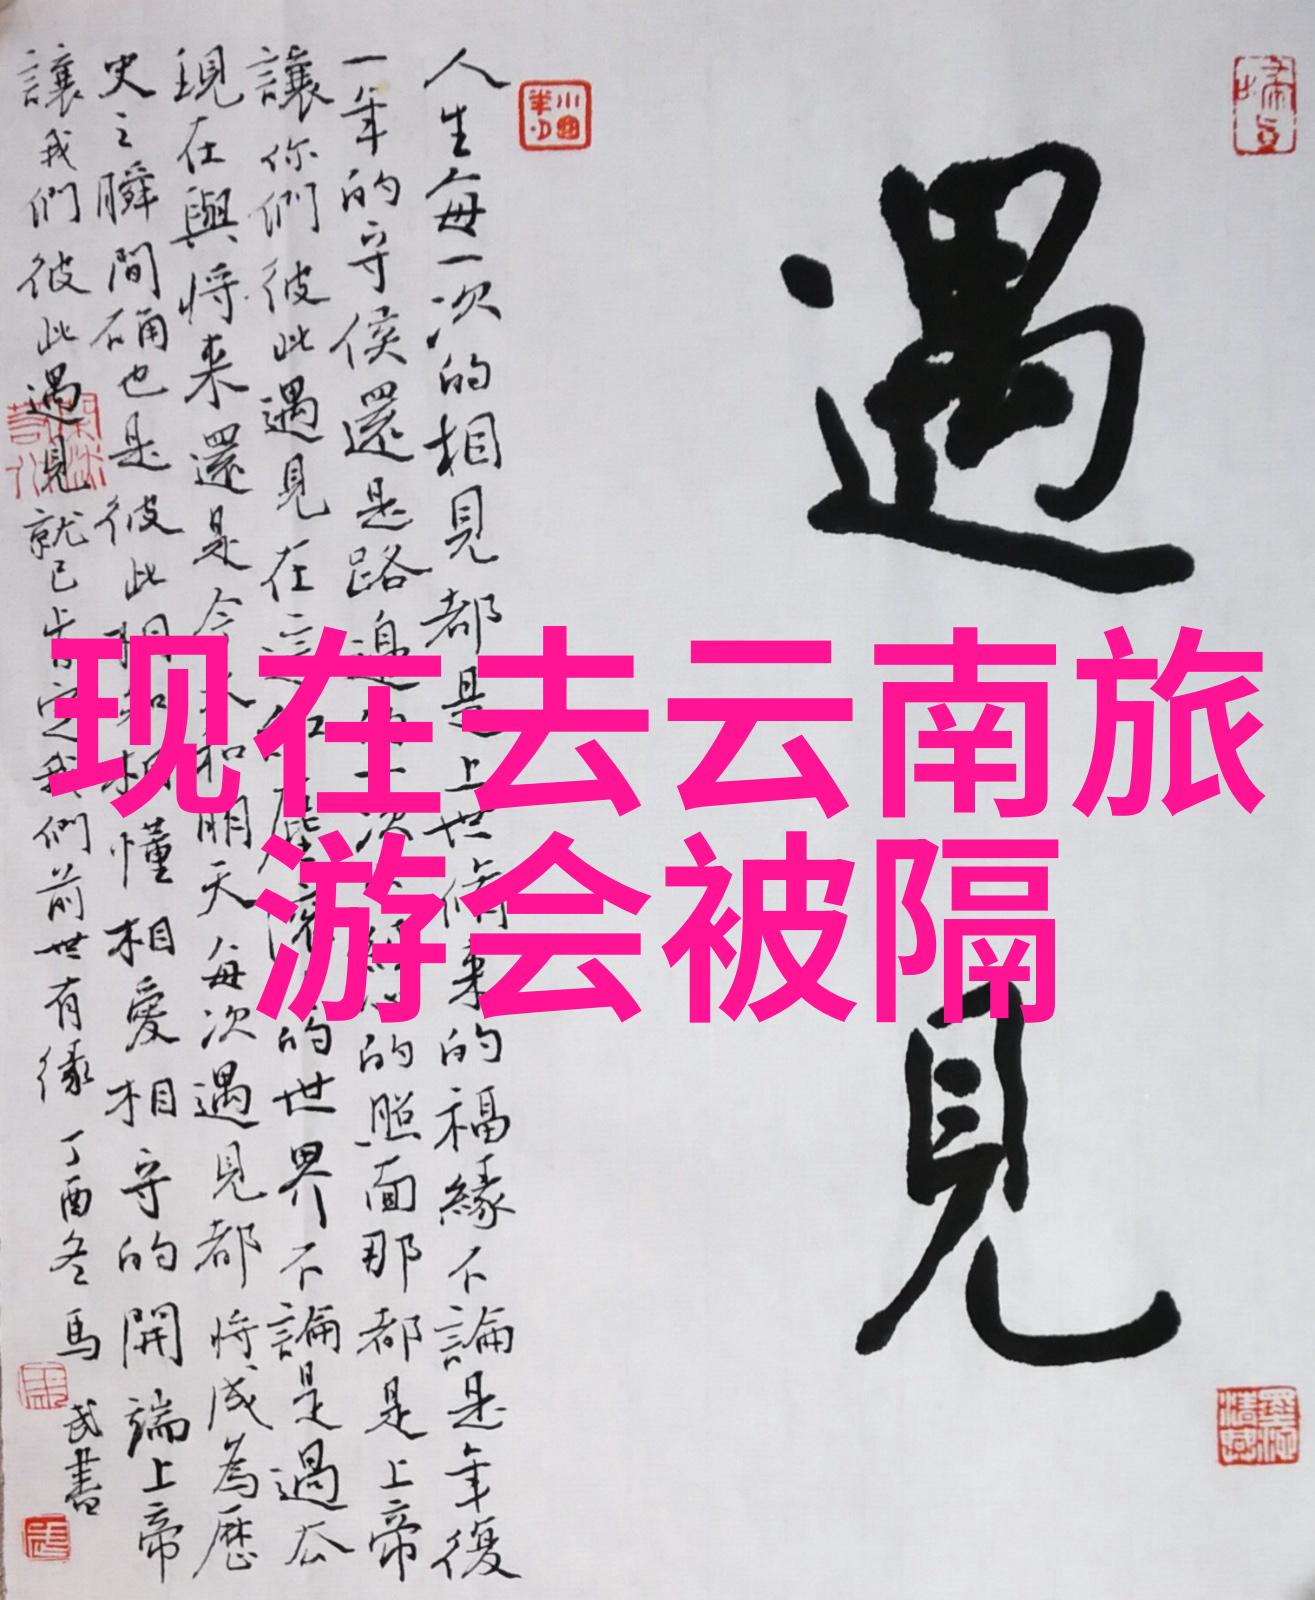 遇見
现在去云南旅
游会被隔
人生每一次的相見都是上世脩来的福緣不論是年復
一年的守侯還是路邊的一次的照面那都是上帝
讓你們彼此遇見在這紅塵的世界不論是過厺
現在與將来還是今天和明天每次遇見都將成為歷
史之瞬間确也是彼此相知相懂相愛相守的開端上帝
讓我們彼此遇見就已肯定我們前世有緣 丁酉冬馬武書